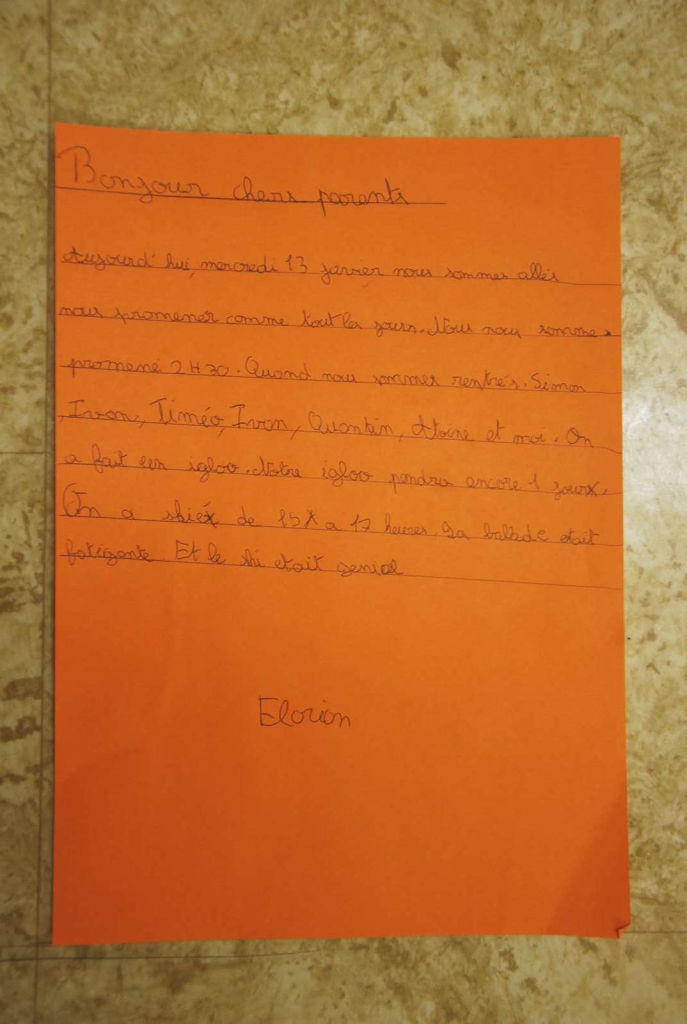 Bonjour chers parents
Aujourd'hui, mercredi 13 janvier nous sommes allés
nous promener comme tout les jours. Nous nous somme
promené 2H30. Quand nous sommes rentrés. Simon
Ivan, Timéo, Ivon, Quentin, Atoine et moi. On
a fait un igloo. Notre igloo pendra encore 1 jours.
On a skié de 15 a 17 heures. La ballade etait
fatigante Et le ski etait genial
Elorian